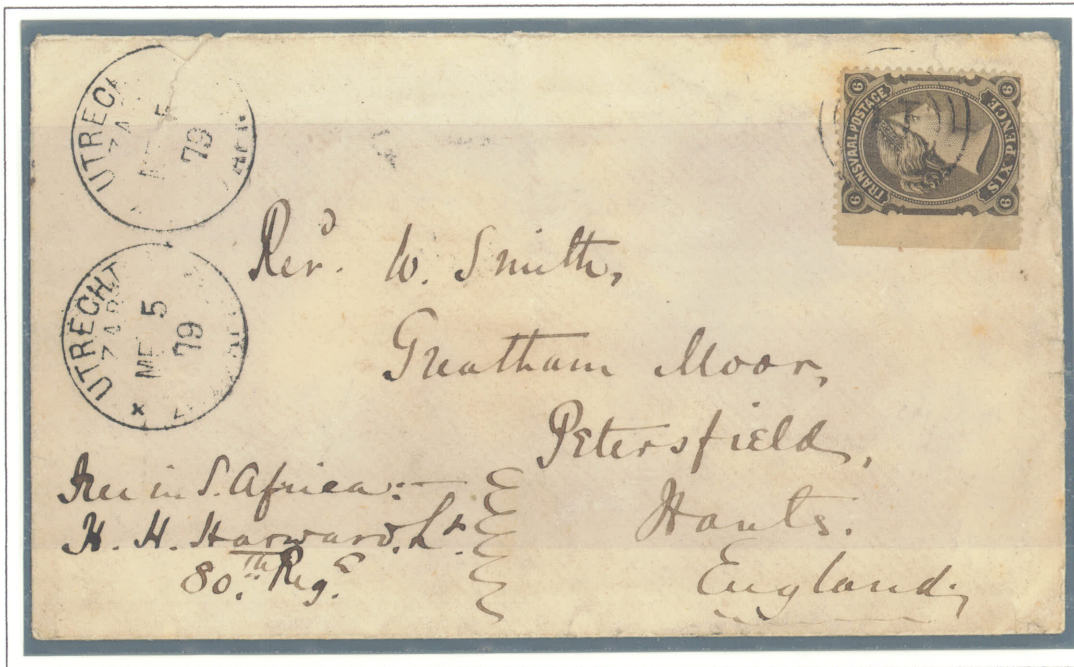 UTRECHT
5
79
UTRECHT
5
79
TRANSVAAL POSTAGE
SIX PENCE
6 6 6 6
Revd. W. Smith,
Greatham Moor,
Petersfield,
Hants.
England,
in S. Africa:—
H. H. Harward. Lt.
80.th Regt.